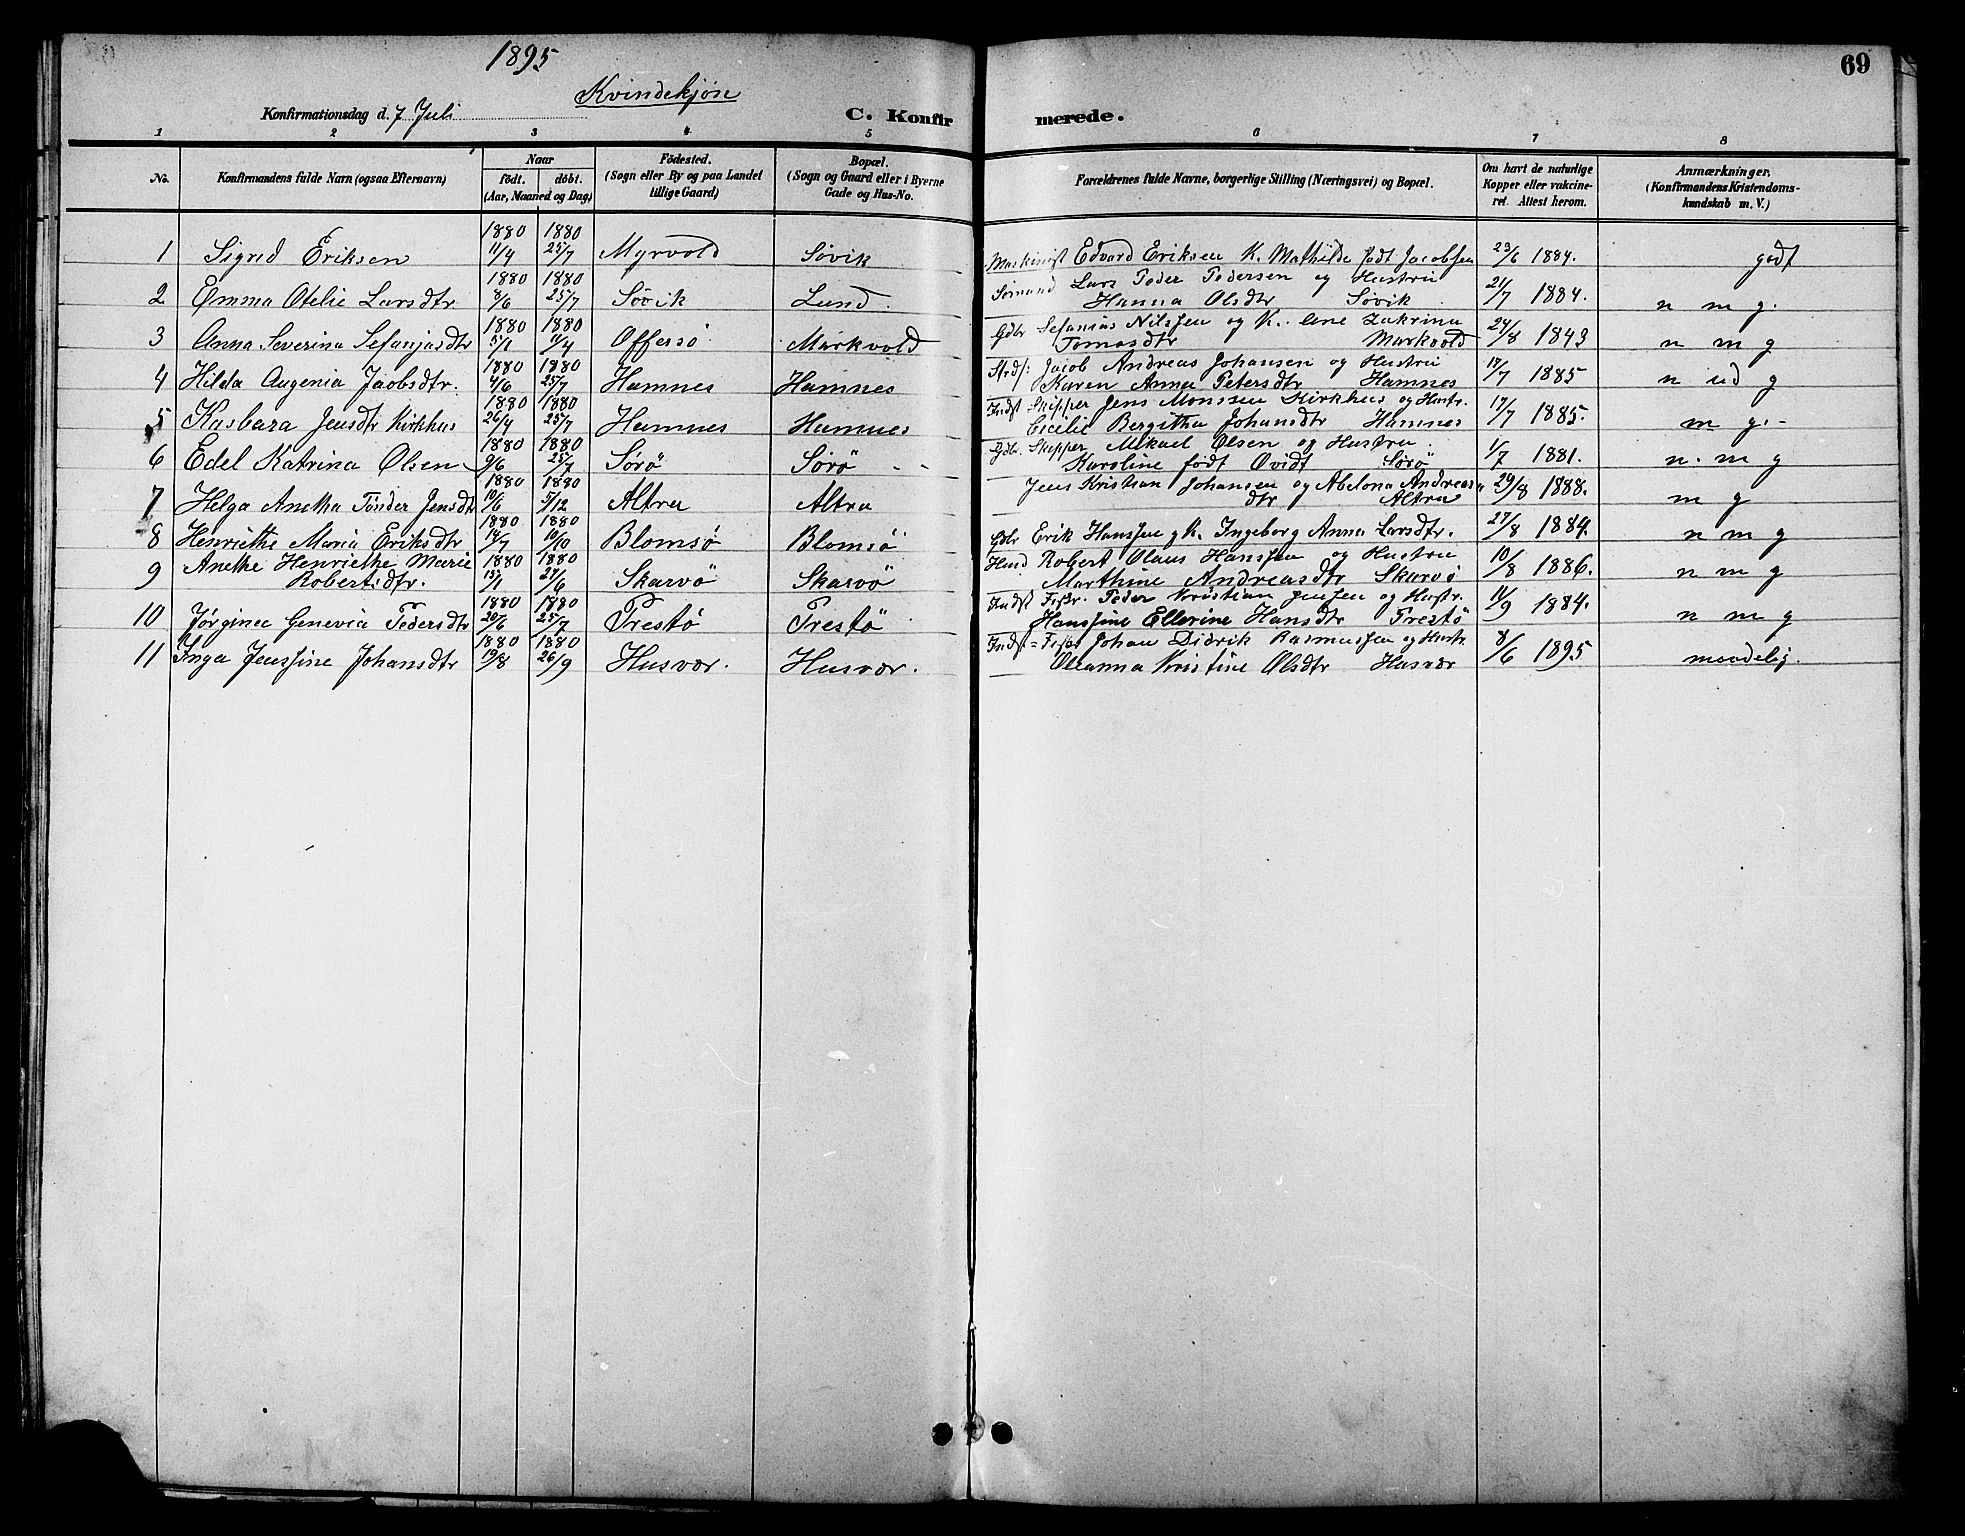 1895
69
Kvindekjøn
Konfirmationsdag d. 7 Juli
C. Konfirmerede.
1 2 3 4 5 6 7 8
No.
Konfirmandens fulde Navn (ogsaa Efternavn)
Naar
født. døbt.
(Aar, Maaned og Dag)
Födested.
(Sogn eller By og paa Landet
tillige Gaard)
Bopæl.
(Sogn og Gaard eller i Byerne
Gade og Hus-No.
Forældrenes fulde Navne, borgerlige Stilling (Næringsvei) og Bopæl.
Om havt de naturlige
Kopper eller vakcine-
ret. Attest herom.
Anmærkninger.
(Konfirmandens Kristendoms-
kundskab m. V.)
1880 1880
1 Sigred Eriksen 11/4 25/7 Myrvold Søvik Maskinist Edvard Eriksen K. Mathilde født Jacobsen 23/6 1884. godt
1880 1880 Sømand Lars Peder Pedersen og Hustru
2 Emma Otelie Larsdtr. 8/6 25/7 Søvik Lund Hanna Olsdtr Søvik 21/7 1884. n m g.
1880 1880 Gdbr Sefanias Nilssen og K. Ane Zakrina
3 Anna Severina Sefanjasdtr 5/1 11/4 Offersö Markvold Tomasdtr Markvold 24/8 1843 n m g
1880 1880 Jacob Andreas Johansen og Hustru
4 Hilda Augenia Jacobsdtr. 4/6 25/7 Hamnes Hamnes Karen Anna Petersdtr Hamnes 17/7 1885 n ud g
1880 1880 Indst Skipper Jens Monssen Kirkhus og Hustr.
5 Kasbara Jensdtr Kirkhus 26/4 25/7 Hamnes Hamnes Cecilie Bergitha Johansdtr Hamnes 17/7 1885. m g.-
1880 1880 Gdbr. Skipper Mikael Olsen og Hustru.
6 Edel Katrina Olsen 9/6 25/7 Sørö Sørö Karoline født Qvidt Sørö 1/7 1881. n. m g
1880 1880 Jens Kristian Johansen og Abelona Andreas
7 Helga Anetha Tönder Jensdtr 10/6 5/12 Altra Altra dtr Altra 29/8 1888. m g
1880 1880
8 Henriethe Maria Eriksdtr 14/7 10/10 Blomsö Blomsö Gdbr Erik Hanssen g K. Ingeborg Anna Larsdtr. 27/8 1884. n m g
Anethe Henriethe Marie 1880 1880 Husd Robert Olaus Hanssen og Hustru
9 Robertsdtr. 15/1 27/6 Skarvö Skarvö Marthine Andreasdtr Skarvö 10/8 1886. n m g
1880 1880 Indst Fisker. Peder Kristian Jensen og Hustr.
10 Jørginea Genevia Pedersdtr 20/6 25/7 Prestö Prestö Hanssine Ellerine Hansdtr Prestö 11/9 1884. n m g
1880 1880 Indst = Fisker Johan Didrik Rasmussen og Hustr.
11 Inga Jenssine Johansdtr 19/8 26/9 Husvær. Husvær. Oleanna Kristine Olsdtr Husvær 8/6 1895 maadelig.